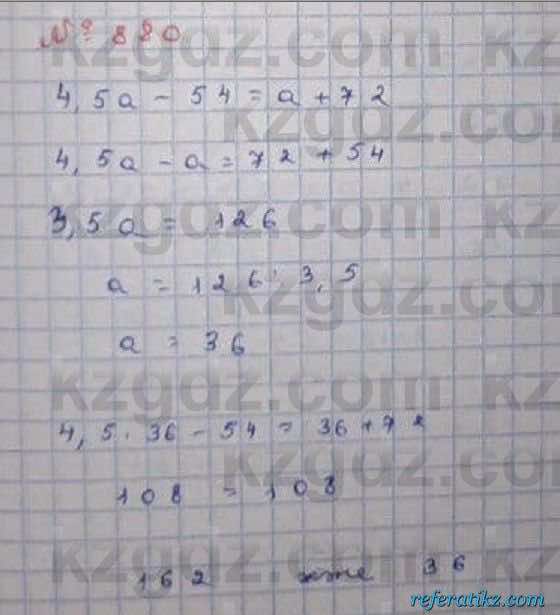 № 880
4,5a - 54 = a + 72
4,5a - a = 72 + 54
3,5a = 126
a = 126 : 3,5
a = 36
4,5 · 36 - 54 = 36 + 72
108 = 108
162 және 36
kzgdz.com
referatikz.com